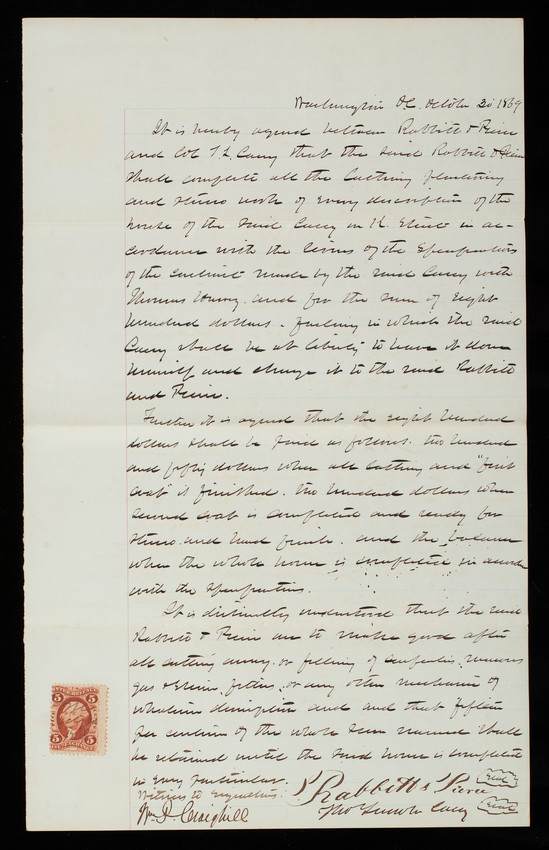 Washington D.C. October 20 1869
It is hereby agreed between Rabbitt & Pierce
and Col T. L. Casey that the said Rabbitt & Pierce
shall complete all the lathing plastering
and stucco work of every description of the
house of the said Casey on K. Street in ac-
cordance with the terms of the specifications
of the contract made by the said Casey with
Thomas and for the sum of eight
hundred dollars. failing in which the said
Casey shall be at liberty to have it done
himself and charge it to the said Rabbitt
and Pierce.
Further it is agreed that the eight hundred
dollars shall be paid as follows. two hundred
and fifty dollars when all lathing and "first
coat" is finished. two hundred dollars when
second coat is completed and ready for
stucco and hard finish. and the balance
when the whole house is completed in accord
with the specifications.
It is distinctly understood that the said
Rabbitt & Pierce are to make good after
all cutting away or filling of carpenters, masons
gas & steam fitters, or any other mechanic of
whatever description and that fifteen
per centum of the whole sum named shall
be retained until the said house is completed
in every particular.
Witness to signatures:
Rabbitt & Pierce
Seal
Wm. P. Craighill
Thos Lincoln Casey
Seal
5 5
5 5